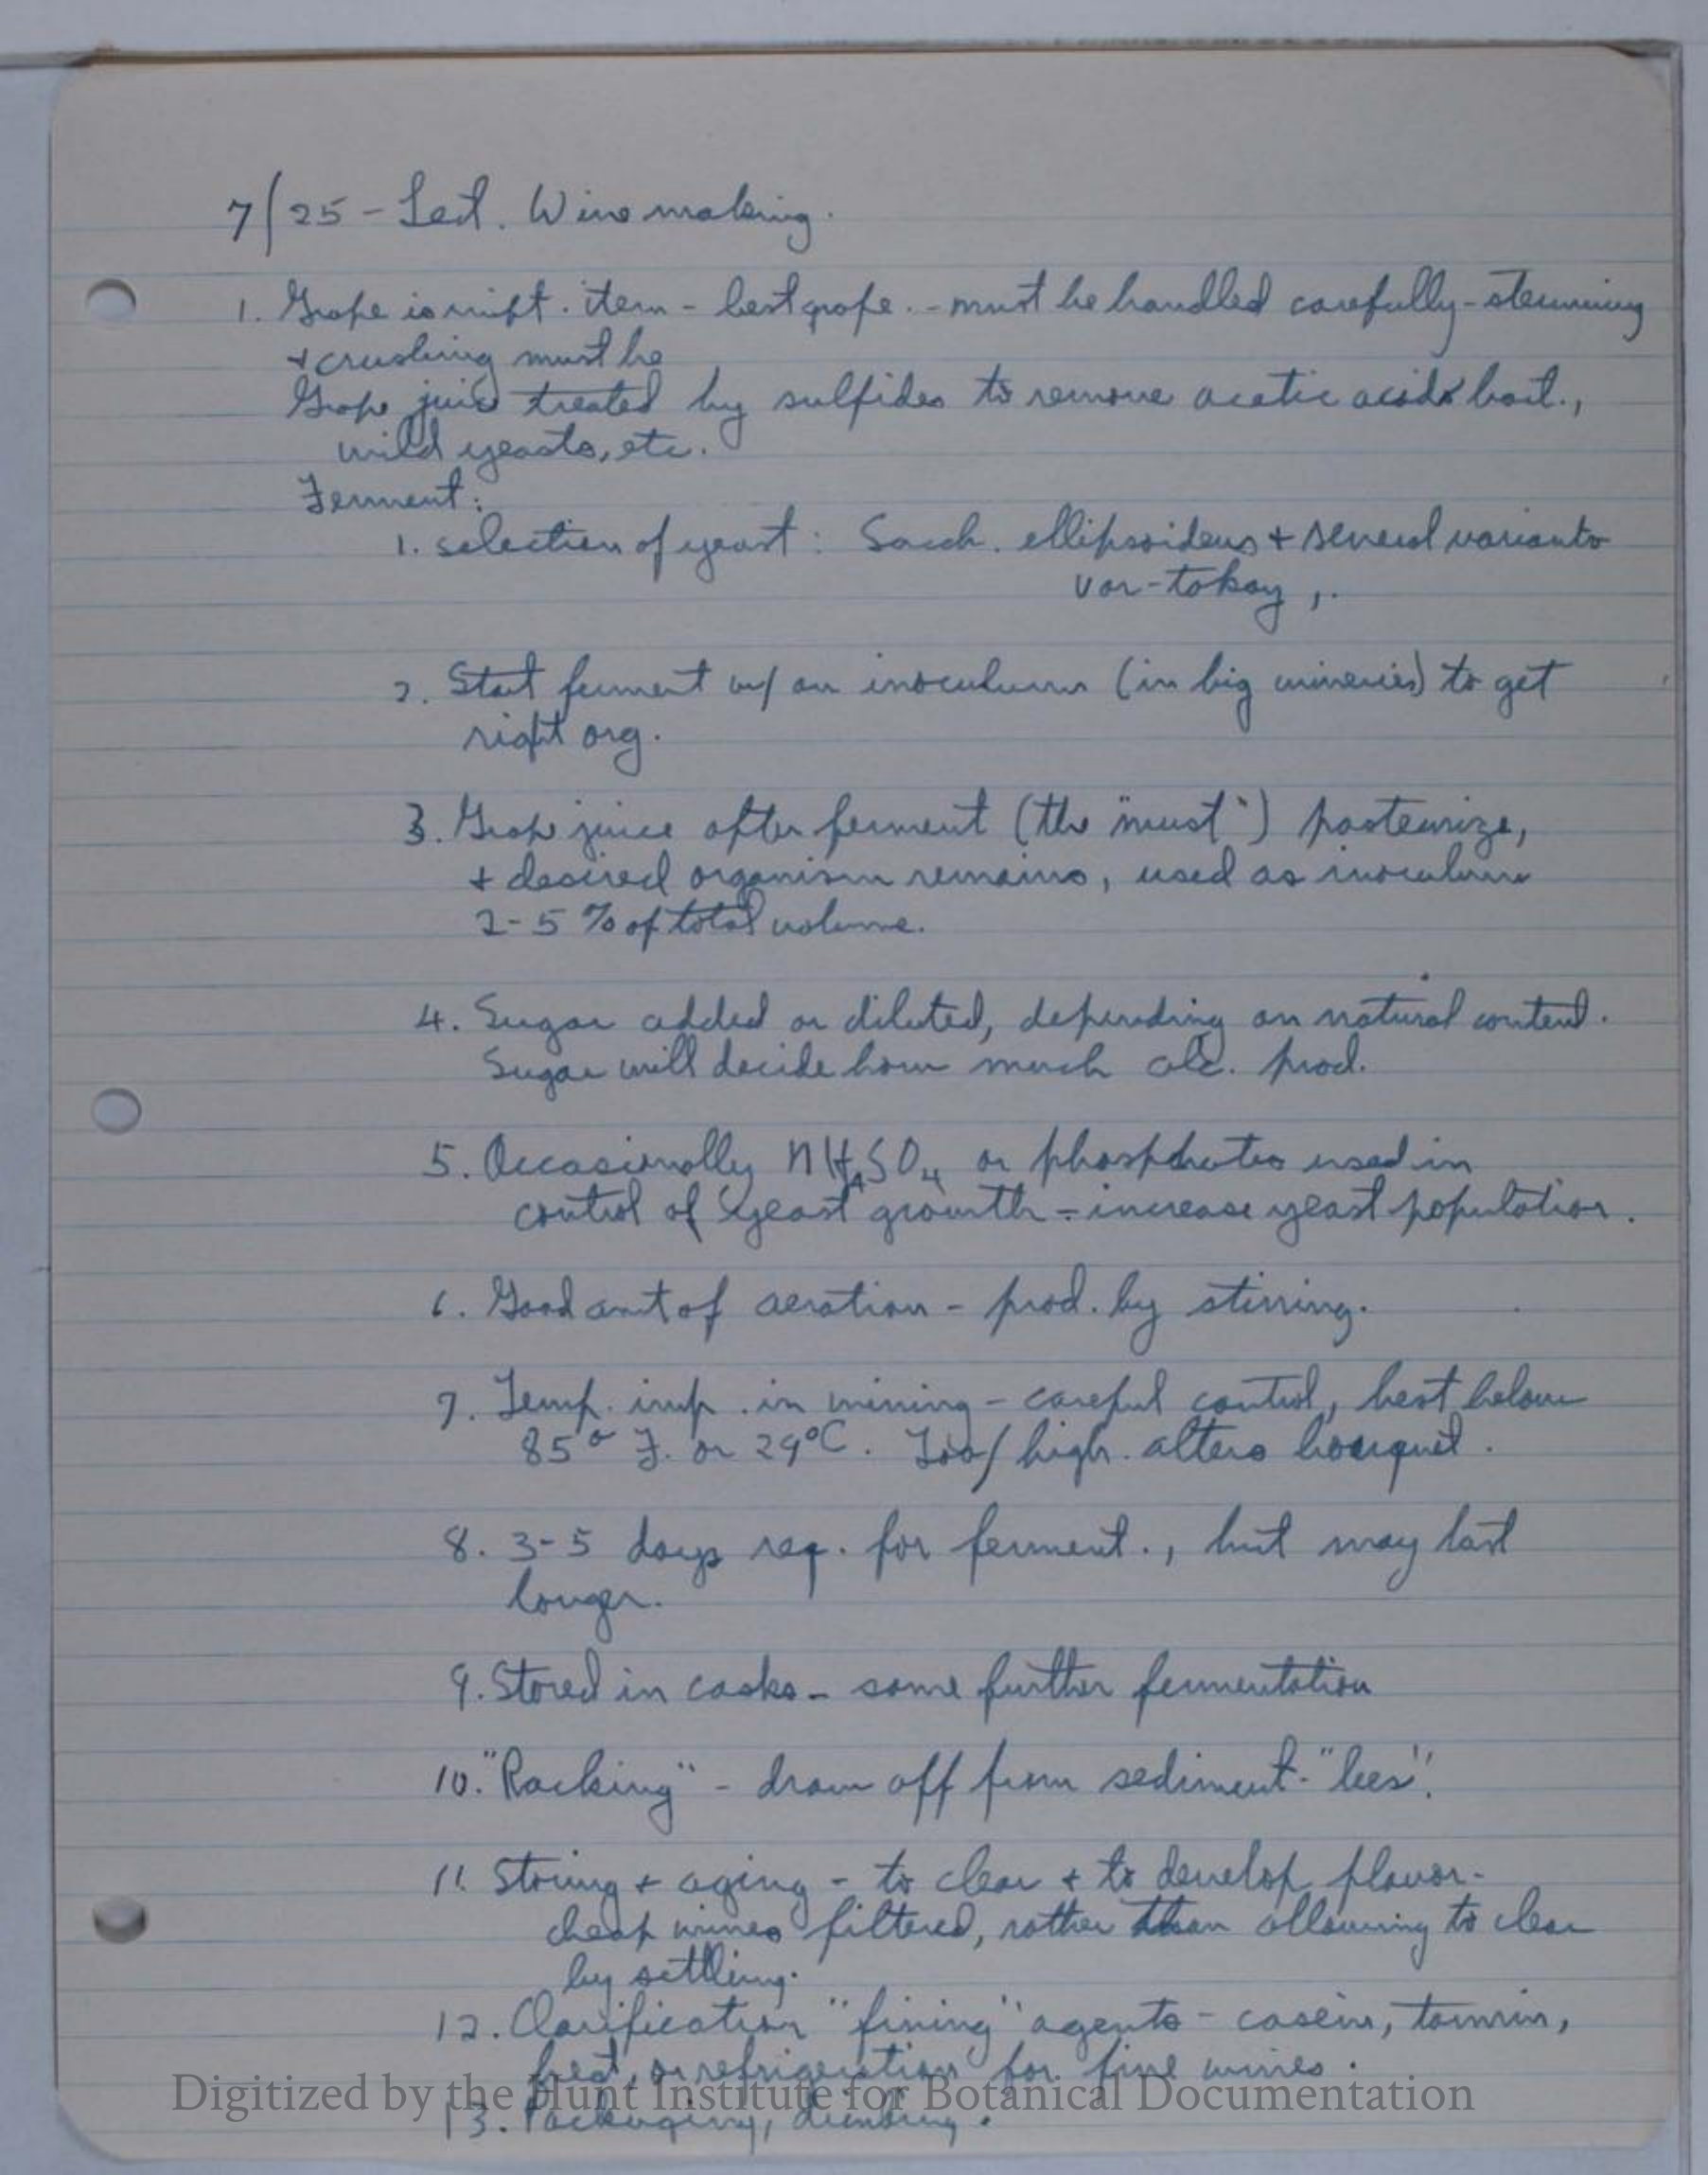 7/25 - Lect. Wine making.
1. Grape is impt. item - best grape. - must be handled carefully - stemming
+ crushing must be
Grape juice treated by sulfides to remove acetic acid bact.,
wild yeasts, etc.
Ferment:
1. selection of yeast: Sacch. ellipsoideus + several variants
var - tokay,.
2. Start ferment w/ an inoculum (in big wineries) to get
right org.
3. Grape juice after ferment (the "must") pasteurize,
+ desired organism remains, used as inoculum
2-5 % of total volume.
4. Sugar added or diluted, depending on natural content.
Sugar will decide how much alc. prod.
5. Occasionally NH4SO4 or phosphates used in
control of yeast growth - increase yeast population.
6. Good amt of aeration - prod. by stirring.
7. Temp. imp. in wining - careful control, best below
85° F. or 29°C. Too/high. alters bouquet.
8. 3-5 days req. for ferment., but may last
longer.
9. Stored in casks - some further fermentation
10. "Racking" - draw off from sediment - "lees".
11. Storing + aging - to clear + to develop flavor -
cheap wines filtered, rather than allowing to clear
by settling.
12. Clarification "fining" agents - casein, tannin,
heat, or refrigeration for fine wines.
Digitized by the Hunt Institute for Botanical Documentation
13. Packaging, drinking.